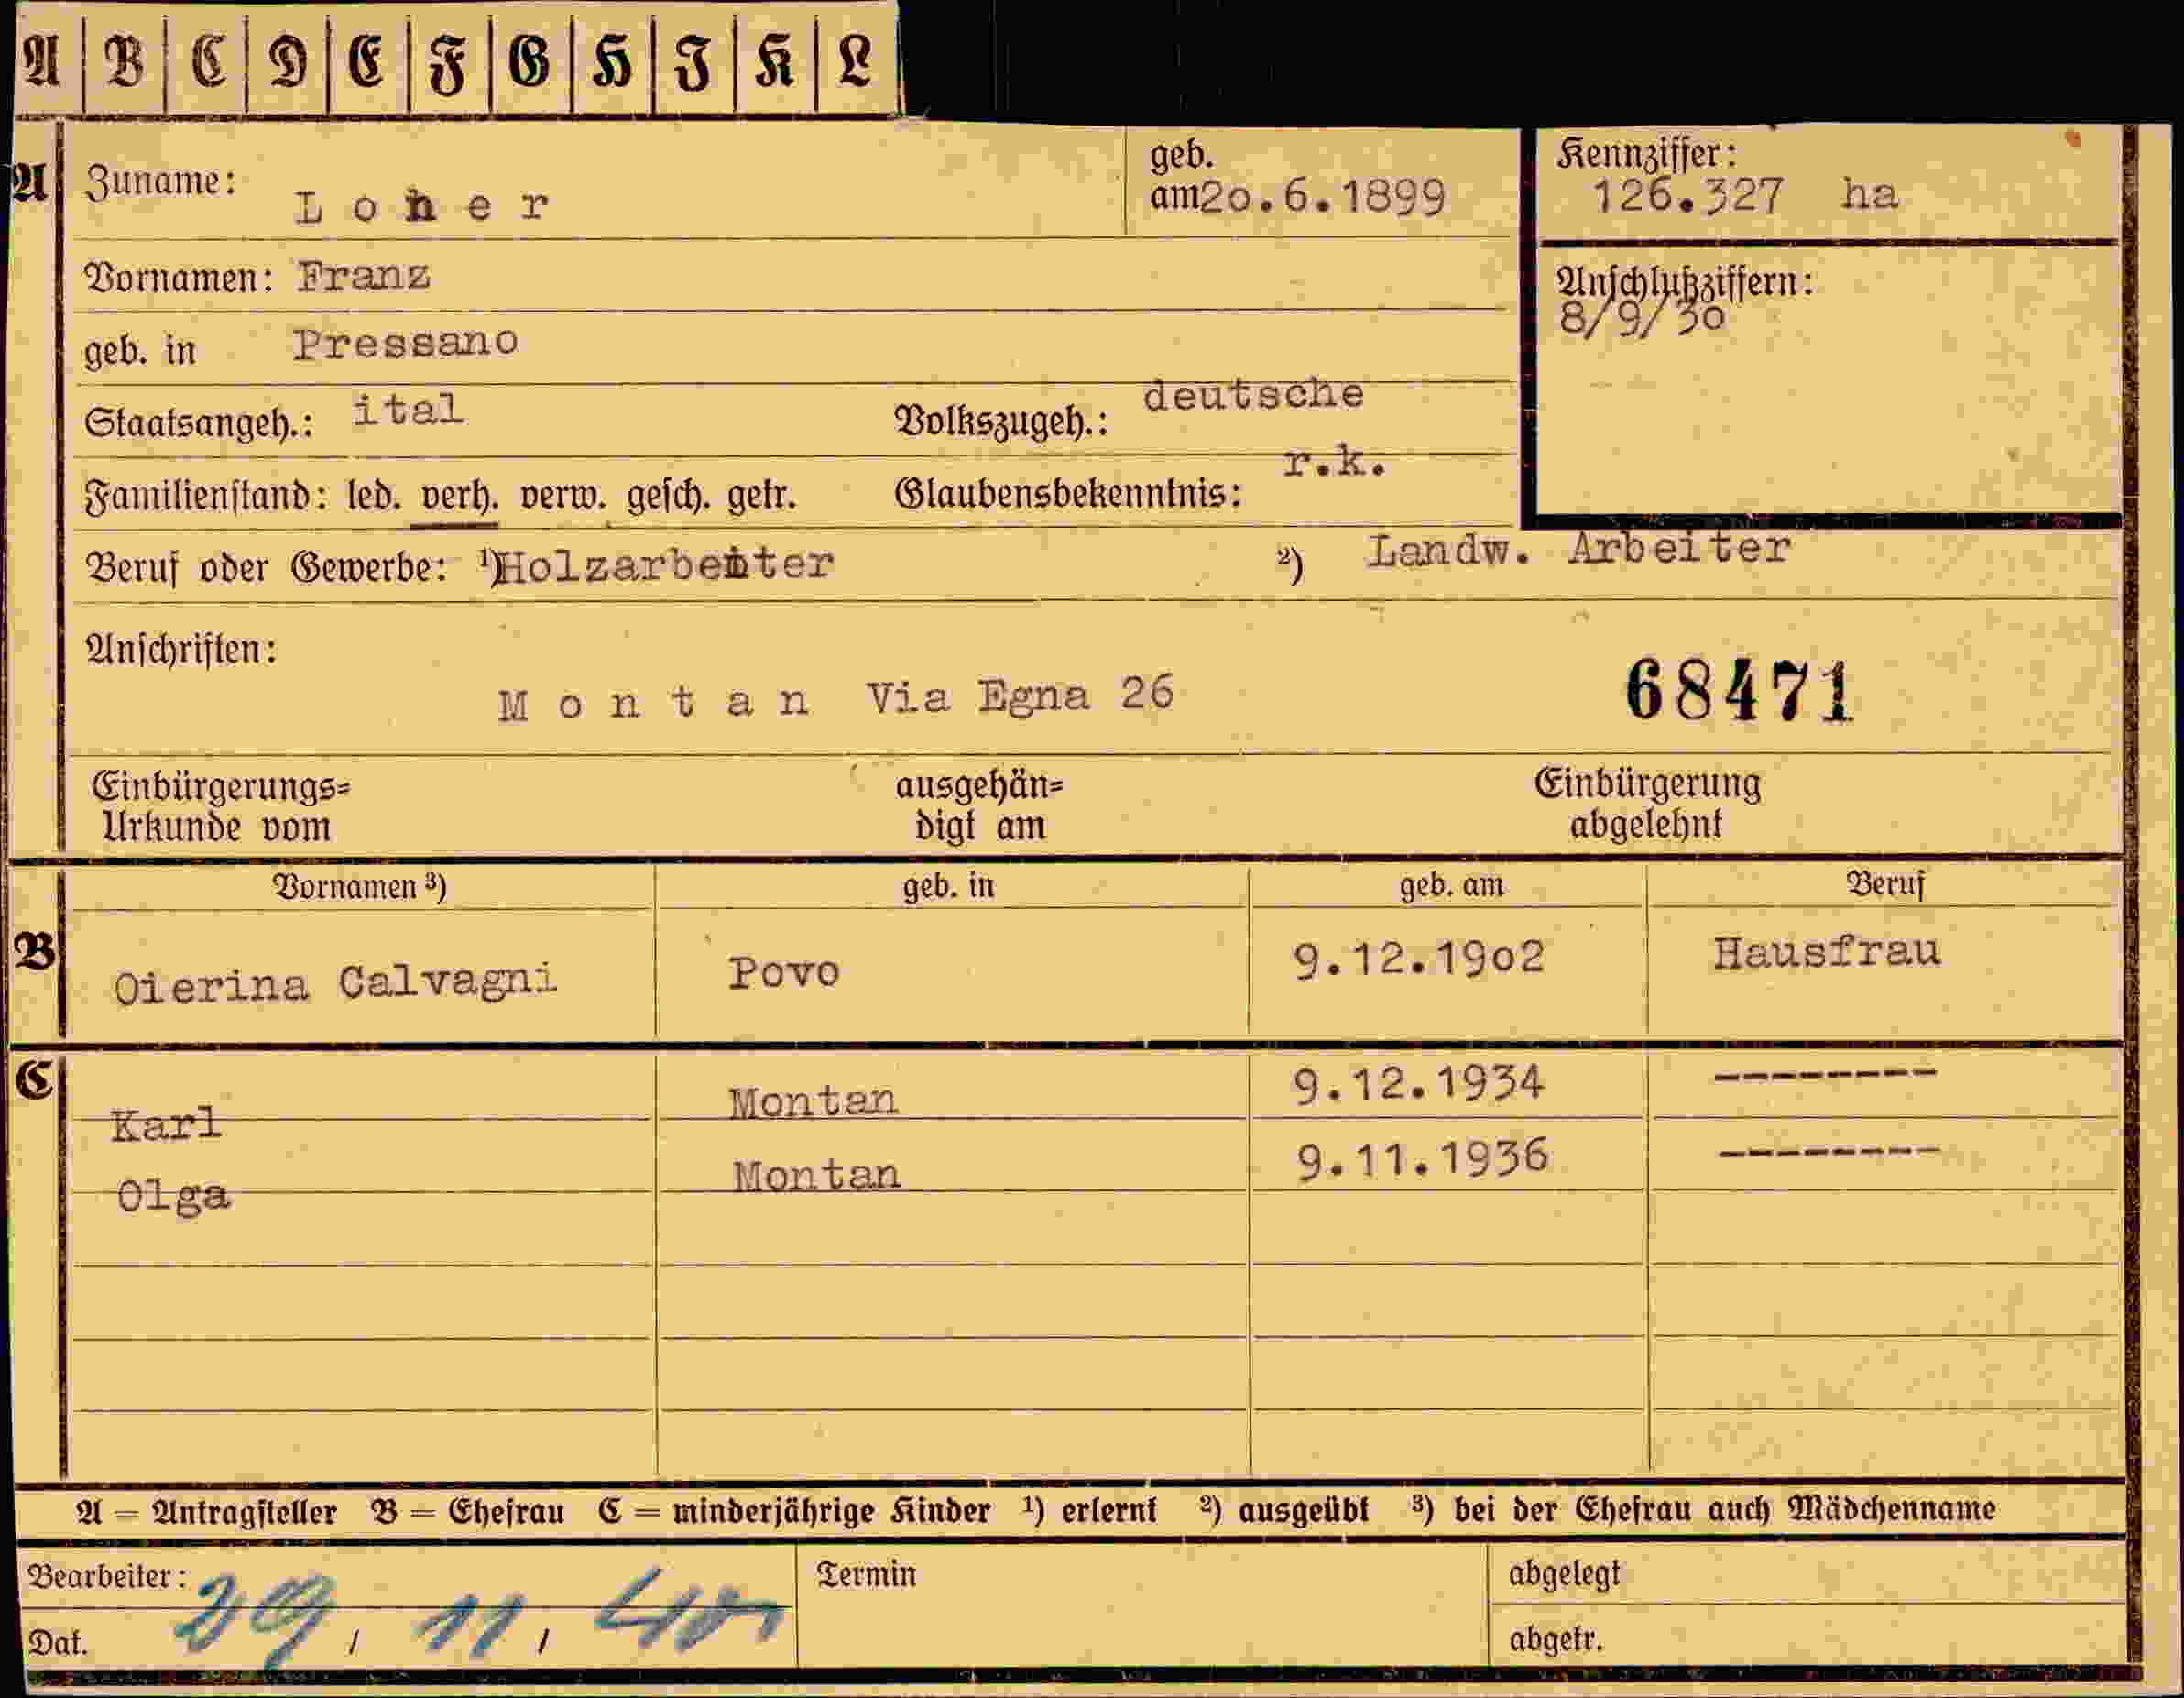 A B C D E F G H I K L
A Zuname: Loher geb. am 2o.6.1899 Kennziffer: 126.327 ha
Vornamen: Franz Anschlußziffern: 8/9/30
geb. in Pressano
Staatsangeh.: ital Volkszugeh.: deutsche
Familienstand: led. verh. verw. gesch. getr. Glaubensbekenntnis: r.k.
Beruf oder Gewerbe: ¹) Holzarbeiter ²) Landw. Arbeiter
Anschriften:
Montan Via Egna 26 68471
Einbürgerungs= ausgehän= Einbürgerung
Urkunde vom digt am abgelehnt
Vornamen ³) geb. in geb. am Beruf
B Oierina Calvagni Povo 9.12.19o2 Hausfrau
C Karl Montan 9.12.1934 --------
Olga Montan 9.11.1936 --------
A = Antragsteller B = Ehefrau C = minderjährige Kinder ¹) erlernt ²) ausgeübt ³) bei der Ehefrau auch Mädchenname
Bearbeiter: Termin abgelegt
Dat. 29 / 11 / 40 abgetr.